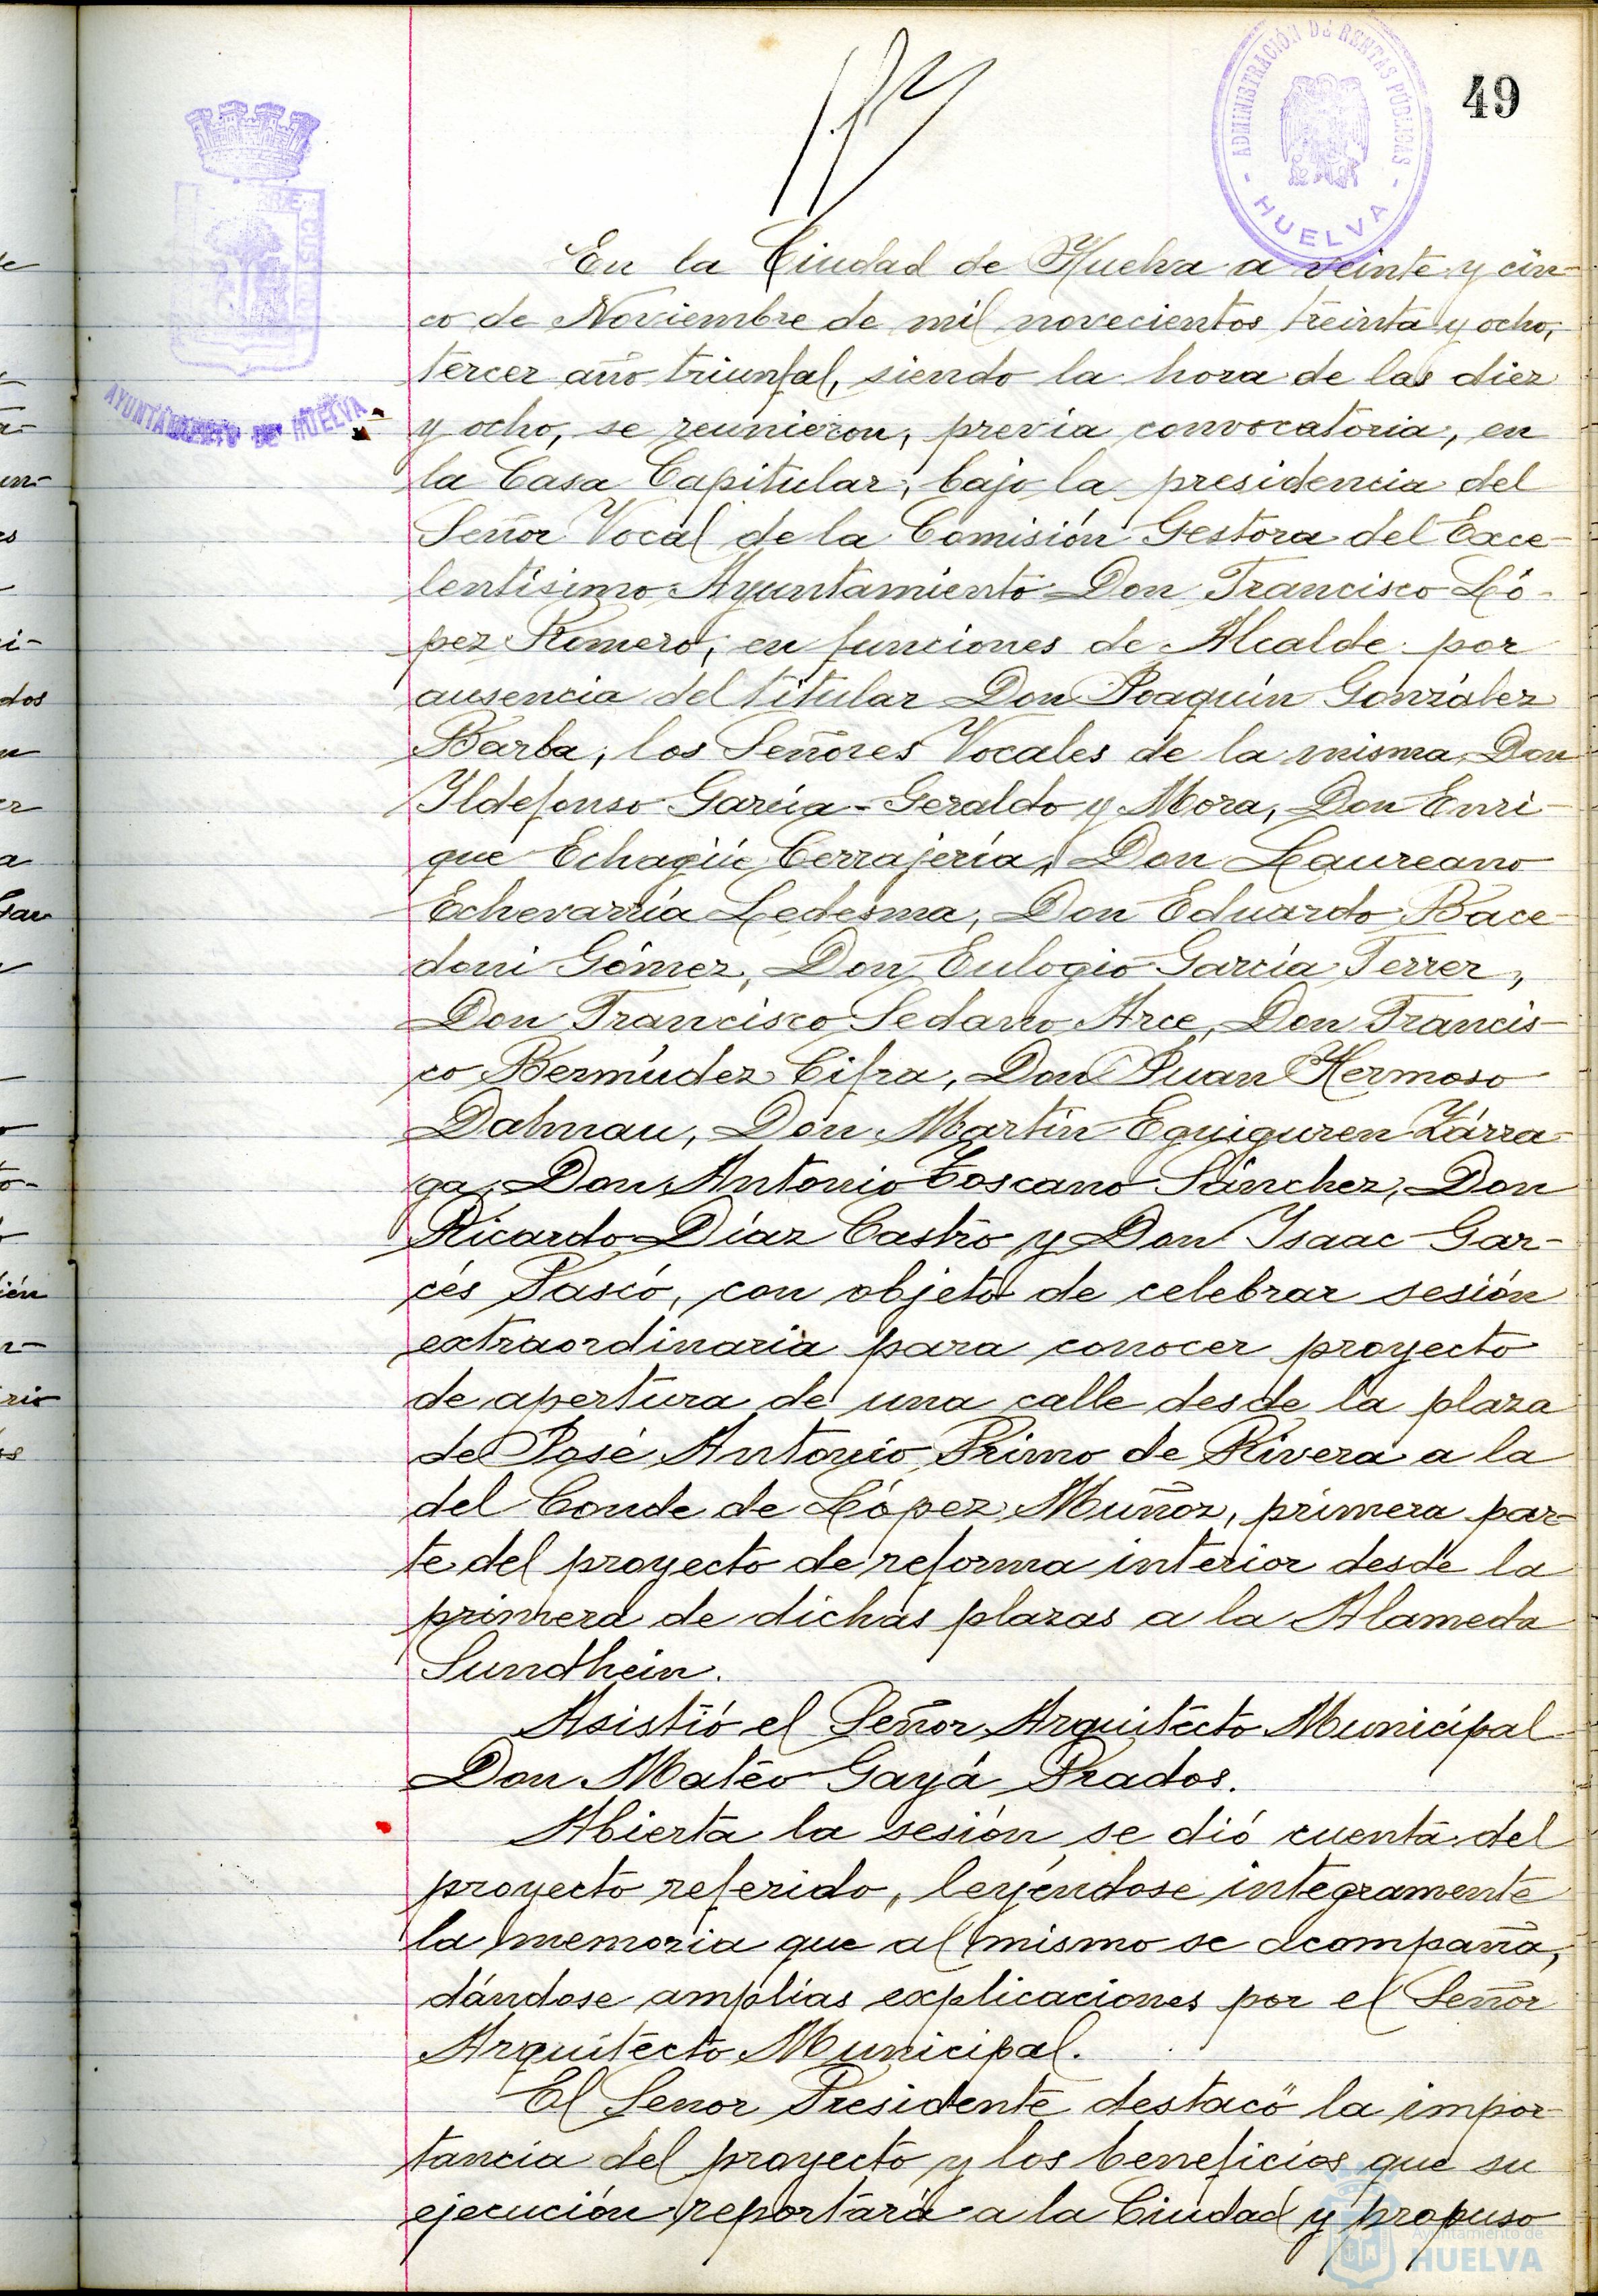 49
ADMINISTRACIÓN DE RENTAS PÚBLICAS
- HUELVA -
AYUNTAMIENTO DE HUELVA
En la Ciudad de Huelva a veinte y cin-
co de Noviembre de mil novecientos treinta y ocho,
tercer año triunfal, siendo la hora de las diez
y ocho, se reunieron, previa convocatoria, en
la Casa Capitular, bajo la presidencia del
Señor Vocal de la Comisión Gestora del Exce-
lentísimo Ayuntamiento Don Francisco Ló-
pez Romero, en funciones de Alcalde por
ausencia del titular Don Joaquín González
Barba, los Señores Vocales de la misma, Don
Ildefonso García-Geraldo y Mora, Don Enri-
que Echagüe Cerrajería, Don Laureano
Echevarría Ledesma, Don Eduardo Bace-
doni Gómez, Don Eulogio García Ferrer,
Don Francisco Sedano Arce, Don Francis-
co Bermúdez Cifra, Don Juan Hermoso
Dalmau, Don Martín Eguiguren Zárra-
ga, Don Antonio Toscano Sánchez, Don
Ricardo Díaz Castro y Don Isaac Gar-
cés Pascó, con objeto de celebrar sesión
extraordinaria para conocer proyecto
de apertura de una calle desde la plaza
de José Antonio Primo de Rivera a la
del Conde de López Muñoz, primera par-
te del proyecto de reforma interior desde la
primera de dichas plazas a la Alameda
Sundhein.
Asistió el Señor Arquitecto Municipal
Don Mateo Gayá Prados.
Abierta la sesión se dió cuenta del
proyecto referido, leyéndose integramente
la memoria que al mismo se acompaña,
dándose amplias explicaciones por el Señor
Arquitecto Municipal.
El Senor Presidente destacó la impor-
tancia del proyecto y los beneficios que su
ejecución reportará a la Ciudad y propuso
Ayuntamiento de
HUELVA